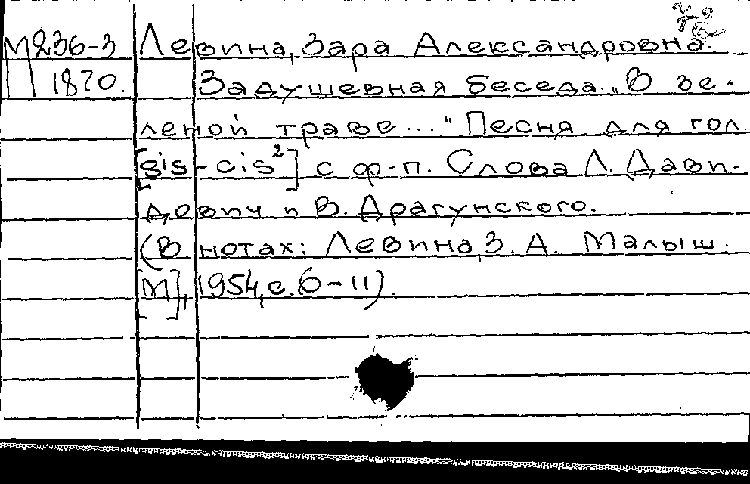 М236-3 Левина, Зара Александровна.
1870. Задушевная беседа. „В зе-
леной траве..." Песня для гол
[gis-cis²] с ф-п. Слова Л. Дави-
дович и В. Драгунского.
(В нотах: Левина, З. А. Малыш.
[М], 1954, с. 6-11).